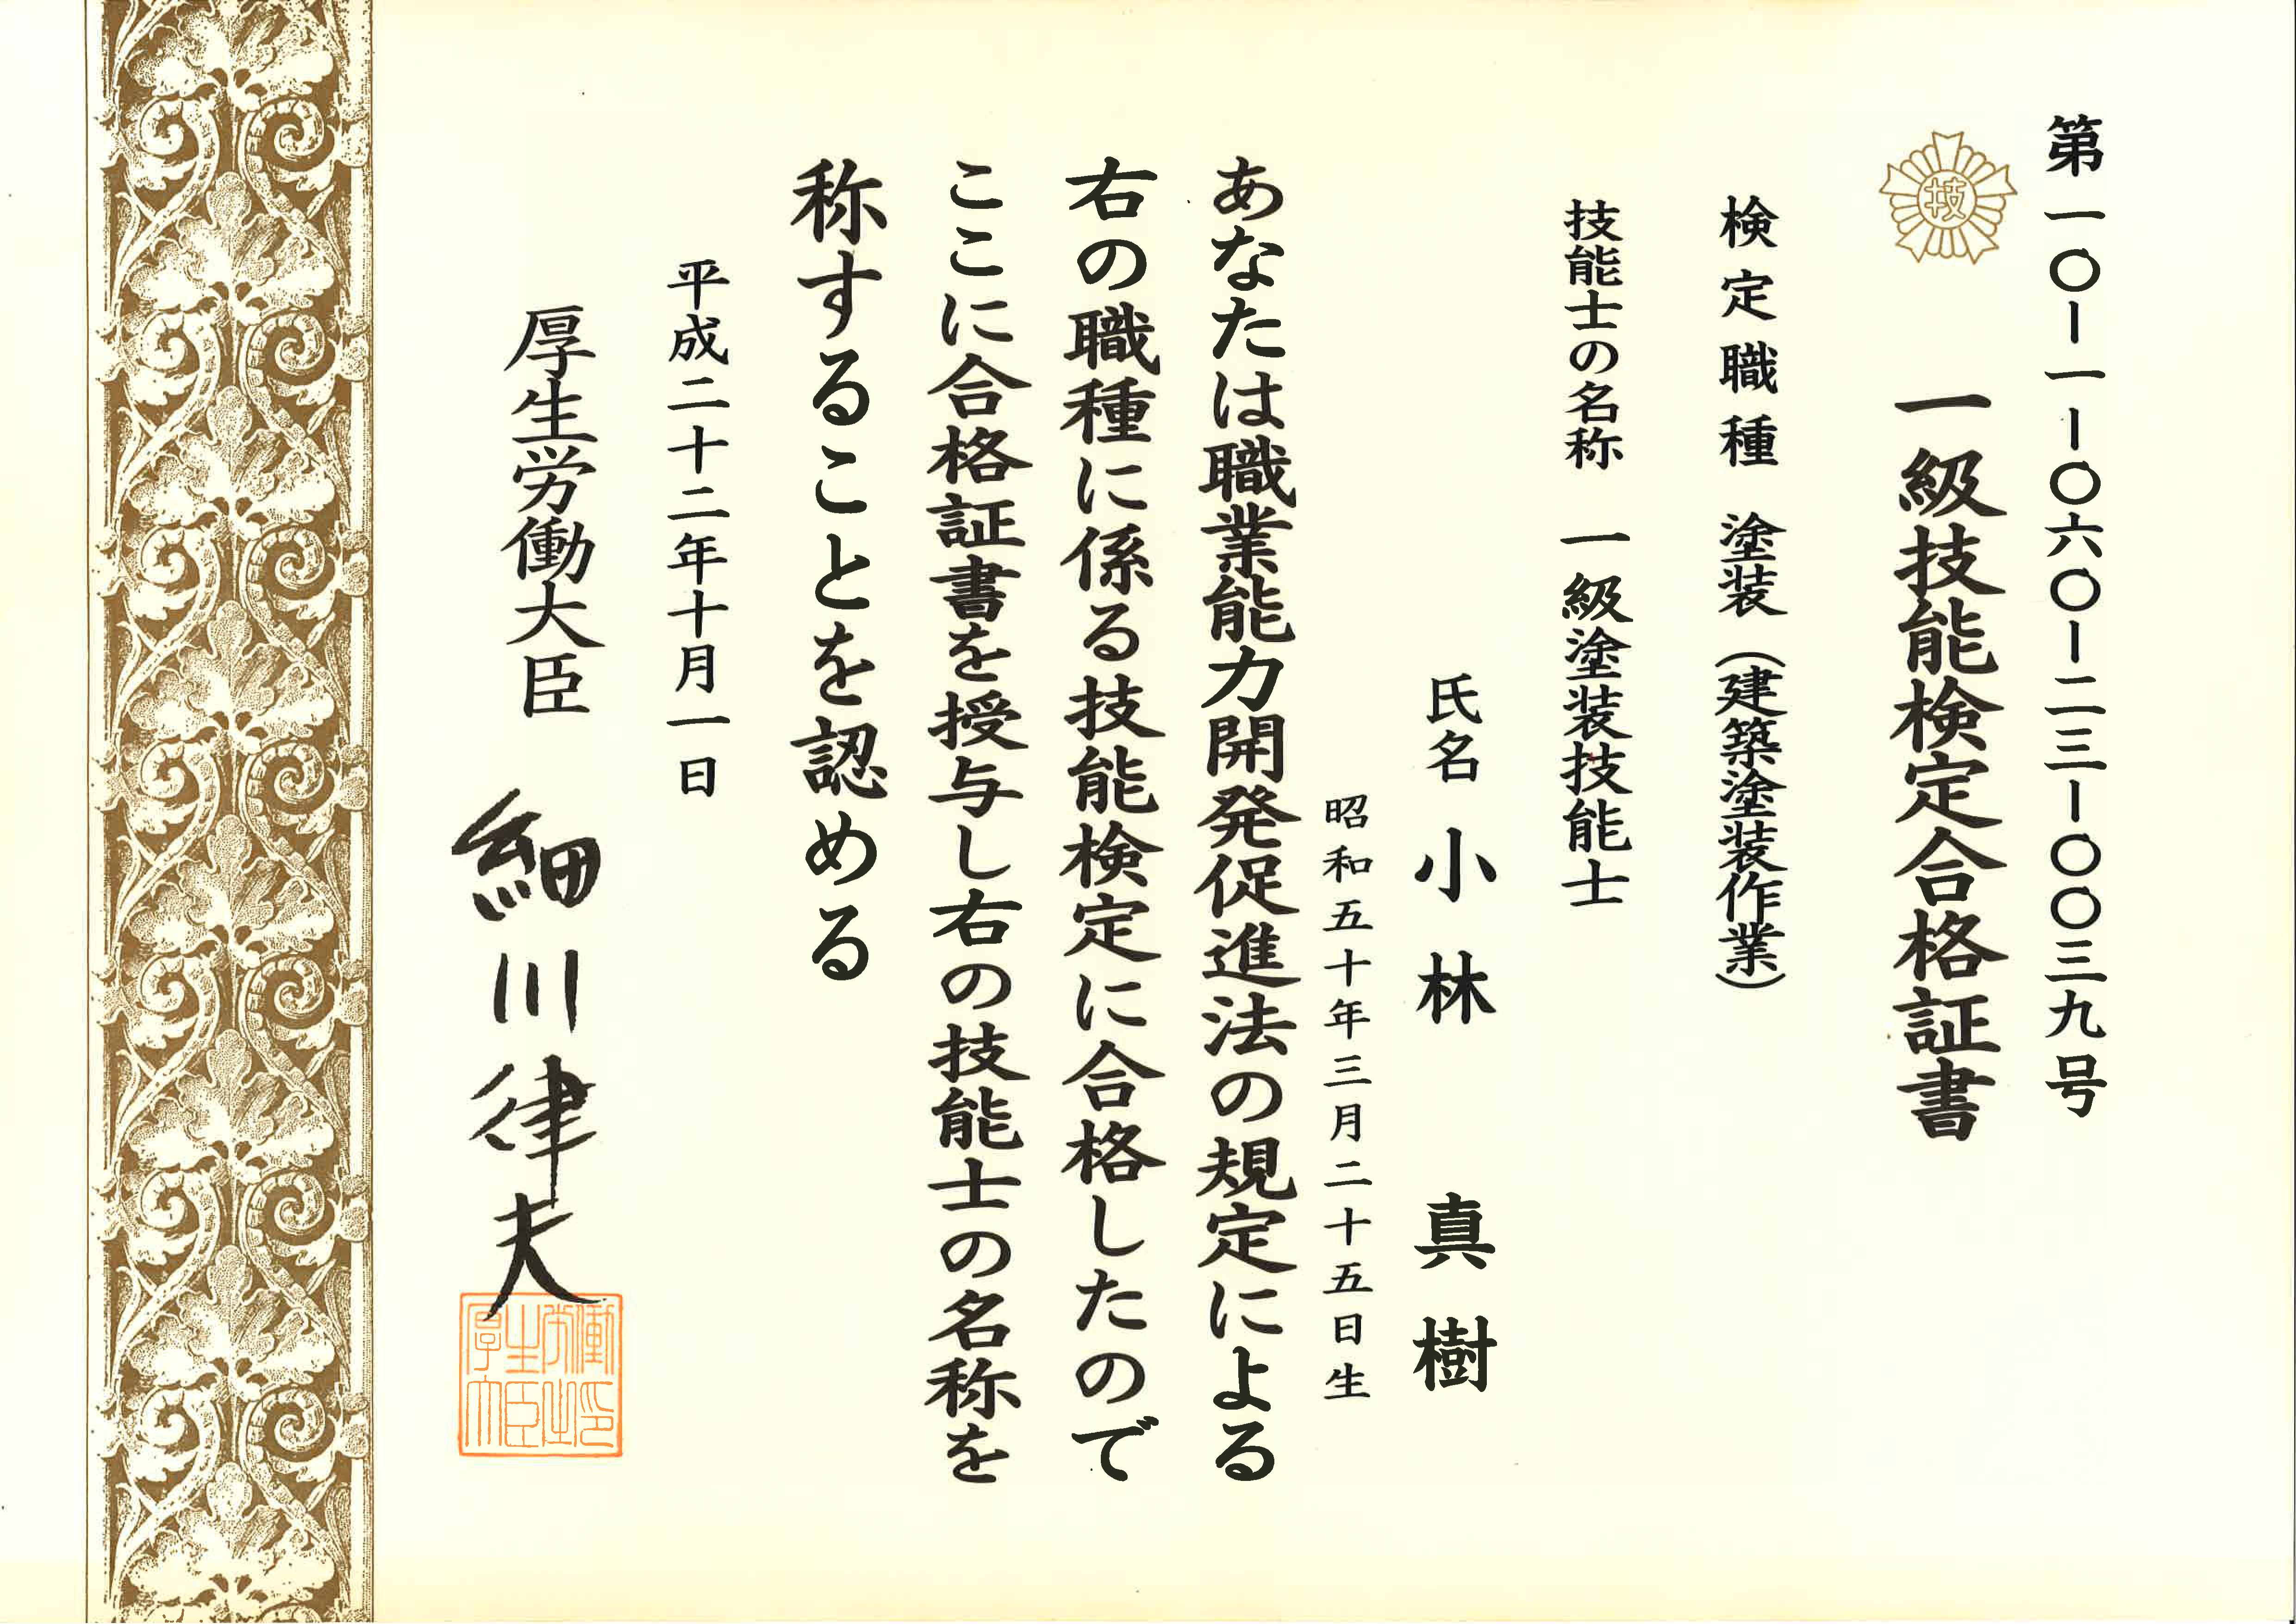 第一〇ー一ー〇六〇ー二三ー〇〇三九号
技
一級技能検定合格証書
検定職種 塗装(建築塗装作業)
技能士の名称 一級塗装技能士
氏名 小林 真樹
昭和五十年三月二十五日生
あなたは職業能力開発促進法の規定による
右の職種に係る技能検定に合格したので
ここに合格証書を授与し右の技能士の名称を
称することを認める
平成二十二年十月一日
厚生労働大臣 細川律夫
働労生厚
印之臣大